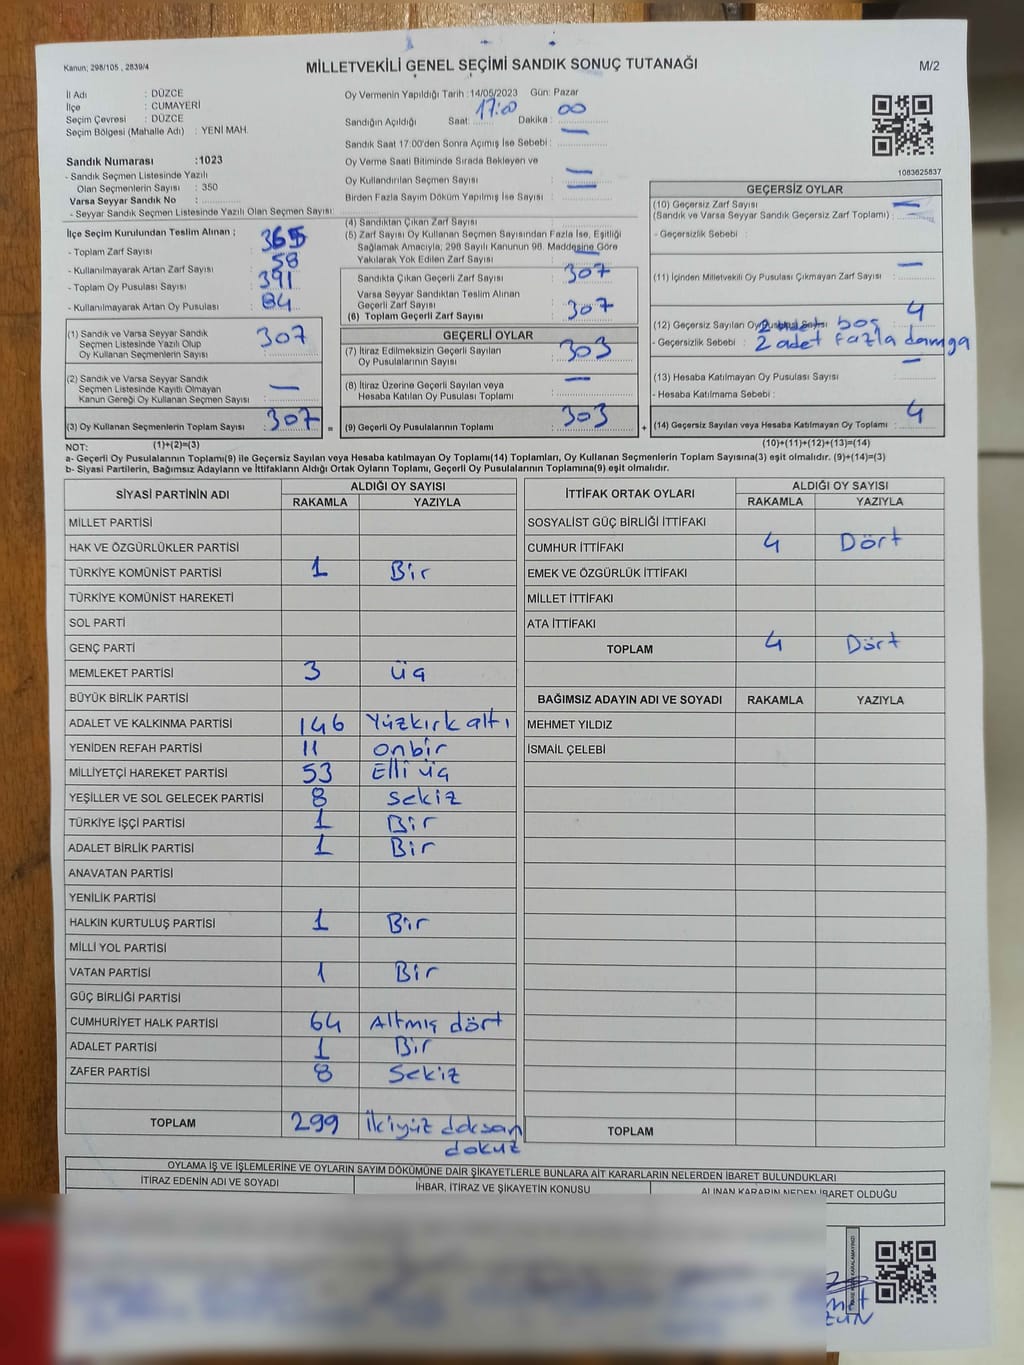 Kanun; 298/105 , 2839/4
MİLLETVEKİLİ GENEL SEÇİMİ SANDIK SONUÇ TUTANAĞI
M/2
İl Adı : DÜZCE
İlçe : CUMAYERİ
Seçim Çevresi : DÜZCE
Seçim Bölgesi (Mahalle Adı) : YENİ MAH.
Sandık Numarası :1023
- Sandık Seçmen Listesinde Yazılı
Olan Seçmenlerin Sayısı : 350
Varsa Seyyar Sandık No :
- Seyyar Sandık Seçmen Listesinde Yazılı Olan Seçmen Sayısı:
Oy Vermenin Yapıldığı Tarih :14/05/2023 Gün: Pazar
Sandığın Açıldığı Saat: 17:00 Dakika : 00
Sandık Saat 17.00'den Sonra Açımış İse Sebebi : —
Oy Verme Saati Bitiminde Sırada Bekleyen ve
Oy Kullandırılan Seçmen Sayısı —
Birden Fazla Sayım Döküm Yapılmış İse Sayısı: —
1083625837
İlçe Seçim Kurulundan Teslim Alınan ;
- Toplam Zarf Sayısı 365
- Kullanılmayarak Artan Zarf Sayısı 58
- Toplam Oy Pusulası Sayısı 391
- Kullanılmayarak Artan Oy Pusulası 84
(1) Sandık ve Varsa Seyyar Sandık
Seçmen Listesinde Yazılı Olup
Oy Kullanan Seçmenlerin Sayısı 307
(2) Sandık ve Varsa Seyyar Sandık
Seçmen Listesinde Kayıtlı Olmayan
Kanun Gereği Oy Kullanan Seçmen Sayısı —
(3) Oy Kullanan Seçmenlerin Toplam Sayısı 307 =
(4) Sandıktan Çıkan Zarf Sayısı
(5) Zarf Sayısı Oy Kullanan Seçmen Sayısından Fazla İse, Eşitliği
Sağlamak Amacıyla; 298 Sayılı Kanunun 98. Maddesine Göre
Yakılarak Yok Edilen Zarf Sayısı: —
Sandıkta Çıkan Geçerli Zarf Sayısı 307
Varsa Seyyar Sandıktan Teslim Alınan
Geçerli Zarf Sayısı
(6) Toplam Geçerli Zarf Sayısı 307
GEÇERLİ OYLAR
(7) İtiraz Edilmeksizin Geçerli Sayılan
Oy Pusulalarının Sayısı 303
(8) İtiraz Üzerine Geçerli Sayılan veya
Hesaba Katılan Oy Pusulası Toplamı —
(9) Geçerli Oy Pusulalarının Toplamı 303 +
GEÇERSİZ OYLAR
(10) Geçersiz Zarf Sayısı —
(Sandık ve Varsa Seyyar Sandık Geçersiz Zarf Toplamı) :
- Geçersizlik Sebebi :
(11) İçinden Milletvekili Oy Pusulası Çıkmayan Zarf Sayısı —
(12) Geçersiz Sayılan Oy Pusulası Sayısı 4
2 adet boş
- Geçersizlik Sebebi : 2 adet fazla damga
(13) Hesaba Katılmayan Oy Pusulası Sayısı —
- Hesaba Katılmama Sebebi :
(14) Geçersiz Sayılan veya Hesaba Katılmayan Oy Toplamı 4
NOT: (1)+(2)=(3) (10)+(11)+(12)+(13)=(14)
a- Geçerli Oy Pusulalarının Toplamı(9) ile Geçersiz Sayılan veya Hesaba katılmayan Oy Toplamı(14) Toplamları, Oy Kullanan Seçmenlerin Toplam Sayısına(3) eşit olmalıdır. (9)+(14)=(3)
b- Siyasi Partilerin, Bağımsız Adayların ve İttifakların Aldığı Ortak Oyların Toplamı, Geçerli Oy Pusulalarının Toplamına(9) eşit olmalıdır.
SİYASİ PARTİNİN ADI ALDIĞI OY SAYISI
RAKAMLA YAZIYLA
MİLLET PARTİSİ
HAK VE ÖZGÜRLÜKLER PARTİSİ
TÜRKİYE KOMÜNİST PARTİSİ 1 Bir
TÜRKİYE KOMÜNİST HAREKETİ
SOL PARTİ
GENÇ PARTİ
MEMLEKET PARTİSİ 3 üç
BÜYÜK BİRLİK PARTİSİ
ADALET VE KALKINMA PARTİSİ 146 Yüzkırk altı
YENİDEN REFAH PARTİSİ 11 onbir
MİLLİYETÇİ HAREKET PARTİSİ 53 Elli üç
YEŞİLLER VE SOL GELECEK PARTİSİ 8 sekiz
TÜRKİYE İŞÇİ PARTİSİ 1 Bir
ADALET BİRLİK PARTİSİ 1 Bir
ANAVATAN PARTİSİ
YENİLİK PARTİSİ
HALKIN KURTULUŞ PARTİSİ 1 Bir
MİLLİ YOL PARTİSİ
VATAN PARTİSİ 1 Bir
GÜÇ BİRLİĞİ PARTİSİ
CUMHURİYET HALK PARTİSİ 64 Altmış dört
ADALET PARTİSİ 1 Bir
ZAFER PARTİSİ 8 Sekiz
TOPLAM 299 ikiyüz doksan
dokuz
İTTİFAK ORTAK OYLARI ALDIĞI OY SAYISI
RAKAMLA YAZIYLA
SOSYALİST GÜÇ BİRLİĞİ İTTİFAKI
CUMHUR İTTİFAKI 4 Dört
EMEK VE ÖZGÜRLÜK İTTİFAKI
MİLLET İTTİFAKI
ATA İTTİFAKI
TOPLAM 4 Dört
BAĞIMSIZ ADAYIN ADI VE SOYADI RAKAMLA YAZIYLA
MEHMET YILDIZ
İSMAİL ÇELEBİ
TOPLAM
OYLAMA İŞ VE İŞLEMLERİNE VE OYLARIN SAYIM DÖKÜMÜNE DAİR ŞİKAYETLERLE BUNLARA AİT KARARLARIN NELERDEN İBARET BULUNDUKLARI
İTİRAZ EDENİN ADI VE SOYADI İHBAR, İTİRAZ VE ŞİKAYETİN KONUSU ALINAN KARARIN NEDEN İBARET OLDUĞU